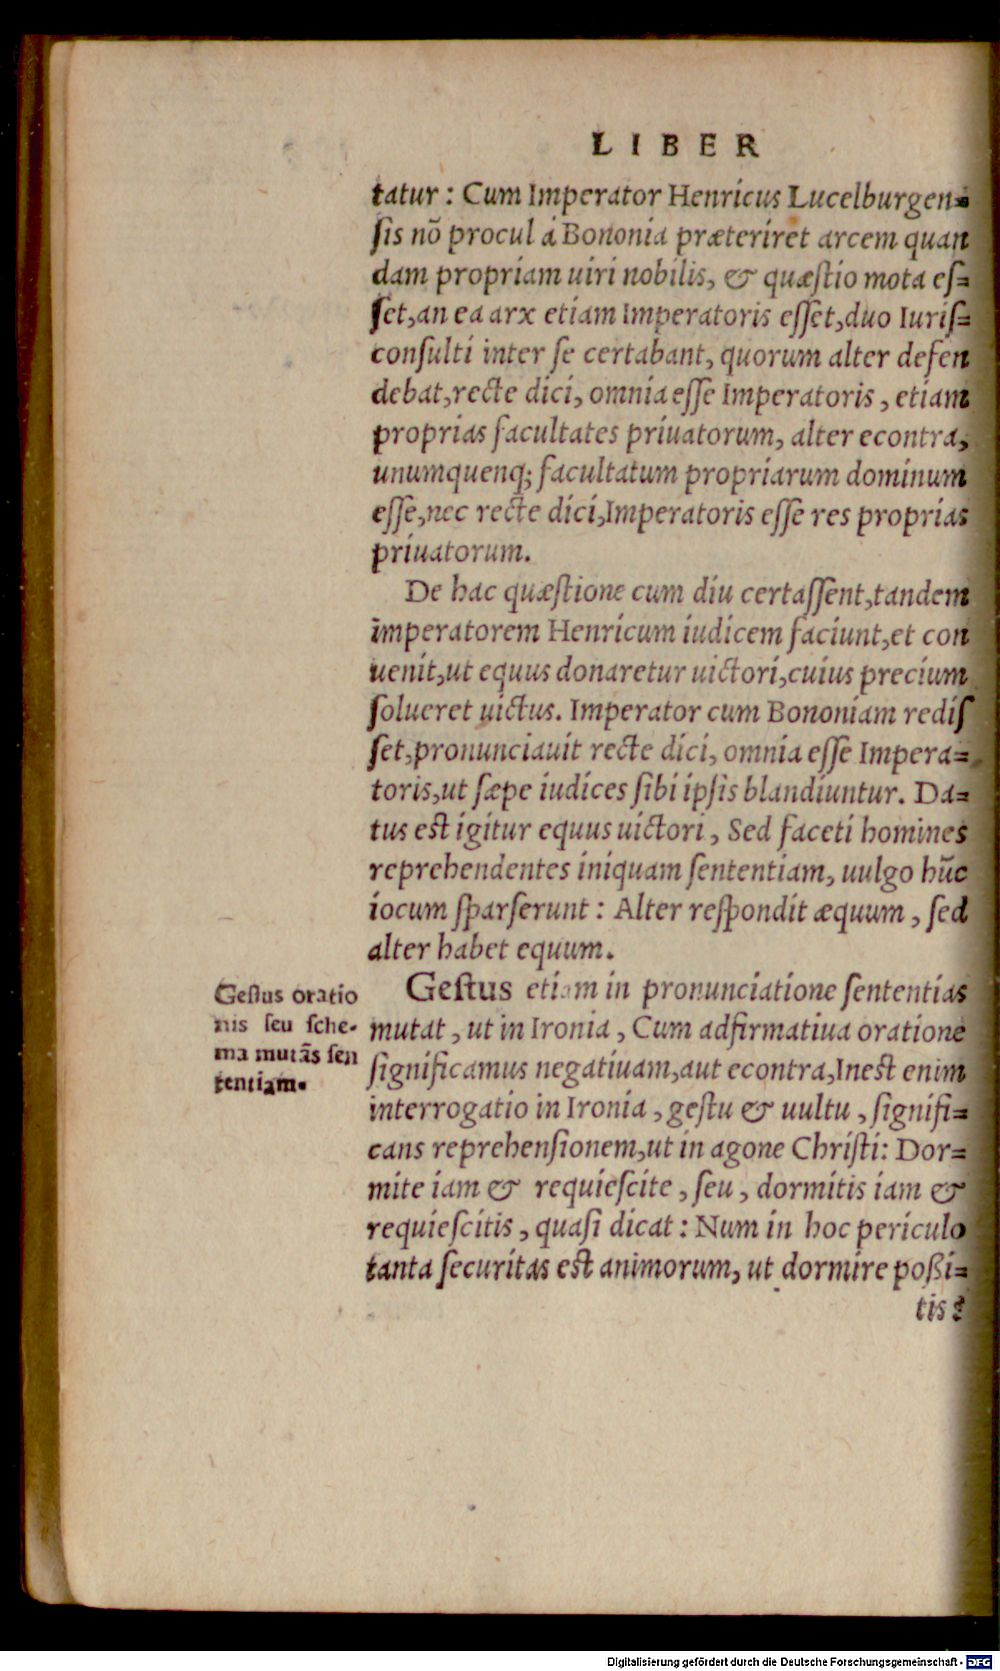 LIBER
tatur: Cum Imperator Henricus Lucelburgen=
ſis nõ procul à Bononia præteriret arcem quan
dam propriam uiri nobilis, & quæſtio mota eſ=
ſet, an ea arx etiam Imperatoris eſſet, duo Iuriſ=
conſulti inter ſe certabant, quorum alter defen
debat, recte dici, omnia eſſe Imperatoris, etiam
proprias facultates priuatorum, alter econtra,
unumquenq; facultatum propriarum dominum
eſſe, nec recte dici, Imperatoris eſſe res proprias
priuatorum.
De hac quæſtione cum diu certaſſent, tandem
imperatorem Henricum iudicem faciunt, et con
uenit, ut equus donaretur uictori, cuius precium
ſolueret uictus. Imperator cum Bononiam rediſ
ſet, pronunciauit recte dici, omnia eſſe Impera=
toris, ut ſæpe iudices ſibi ipſis blandiuntur. Da=
tus eſt igitur equus uictori, Sed faceti homines
reprehendentes iniquam ſententiam, uulgo hũc
iocum ſparſerunt: Alter reſpondit æquum, ſed
alter habet equum.
Geſtus oratio
nis ſeu ſche-
ma mutãs ſen
tentiam.
Geſtus etiam in pronunciatione ſententias
mutat, ut in Ironia, Cum adfirmatiua oratione
ſignificamus negatiuam, aut econtra, Ineſt enim
interrogatio in Ironia, geſtu & uultu, ſignifi=
cans reprehenſionem, ut in agone Chriſti: Dor=
mite iam & requieſcite, ſeu, dormitis iam &
requieſcitis, quaſi dicat: Num in hoc periculo
tanta ſecuritas eſt animorum, ut dormire poßi=
tis?
Digitalisierung gefördert durch die Deutsche Forschungsgemeinschaft - DFG